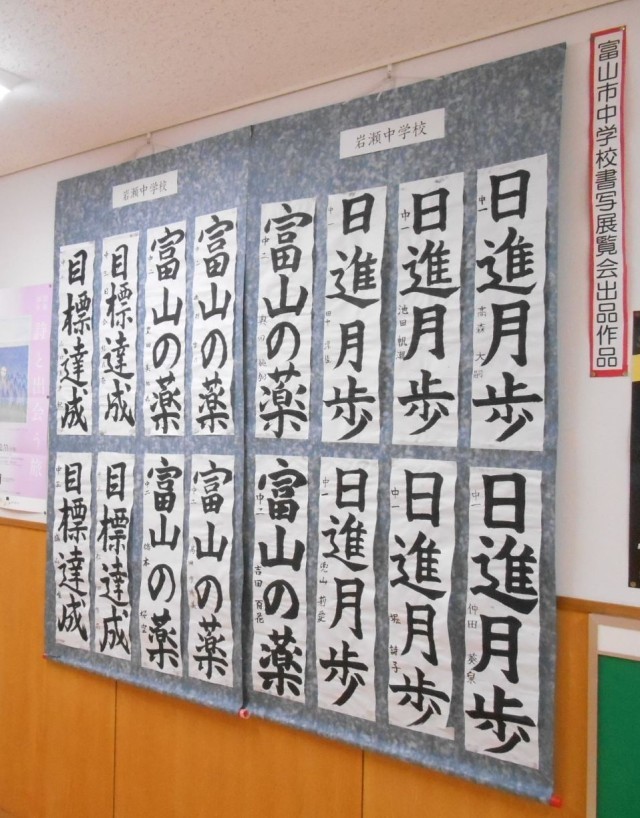 富山市中学校書写展覧会出品作品
岩瀬中学校
日進月歩
中一
高森 大嗣
日進月歩
中一
日進月歩
中一
富山の薬
中二
日進月歩
中一
仲田 美泉
日進月歩
中一
日進月歩
中一
富山の薬
中二
吉田 百花
岩瀬中学校
富山の薬
中二
富山の薬
中二
目標達成
目標達成
富山の薬
中二
富山の薬
中二
目標達成
目標達成